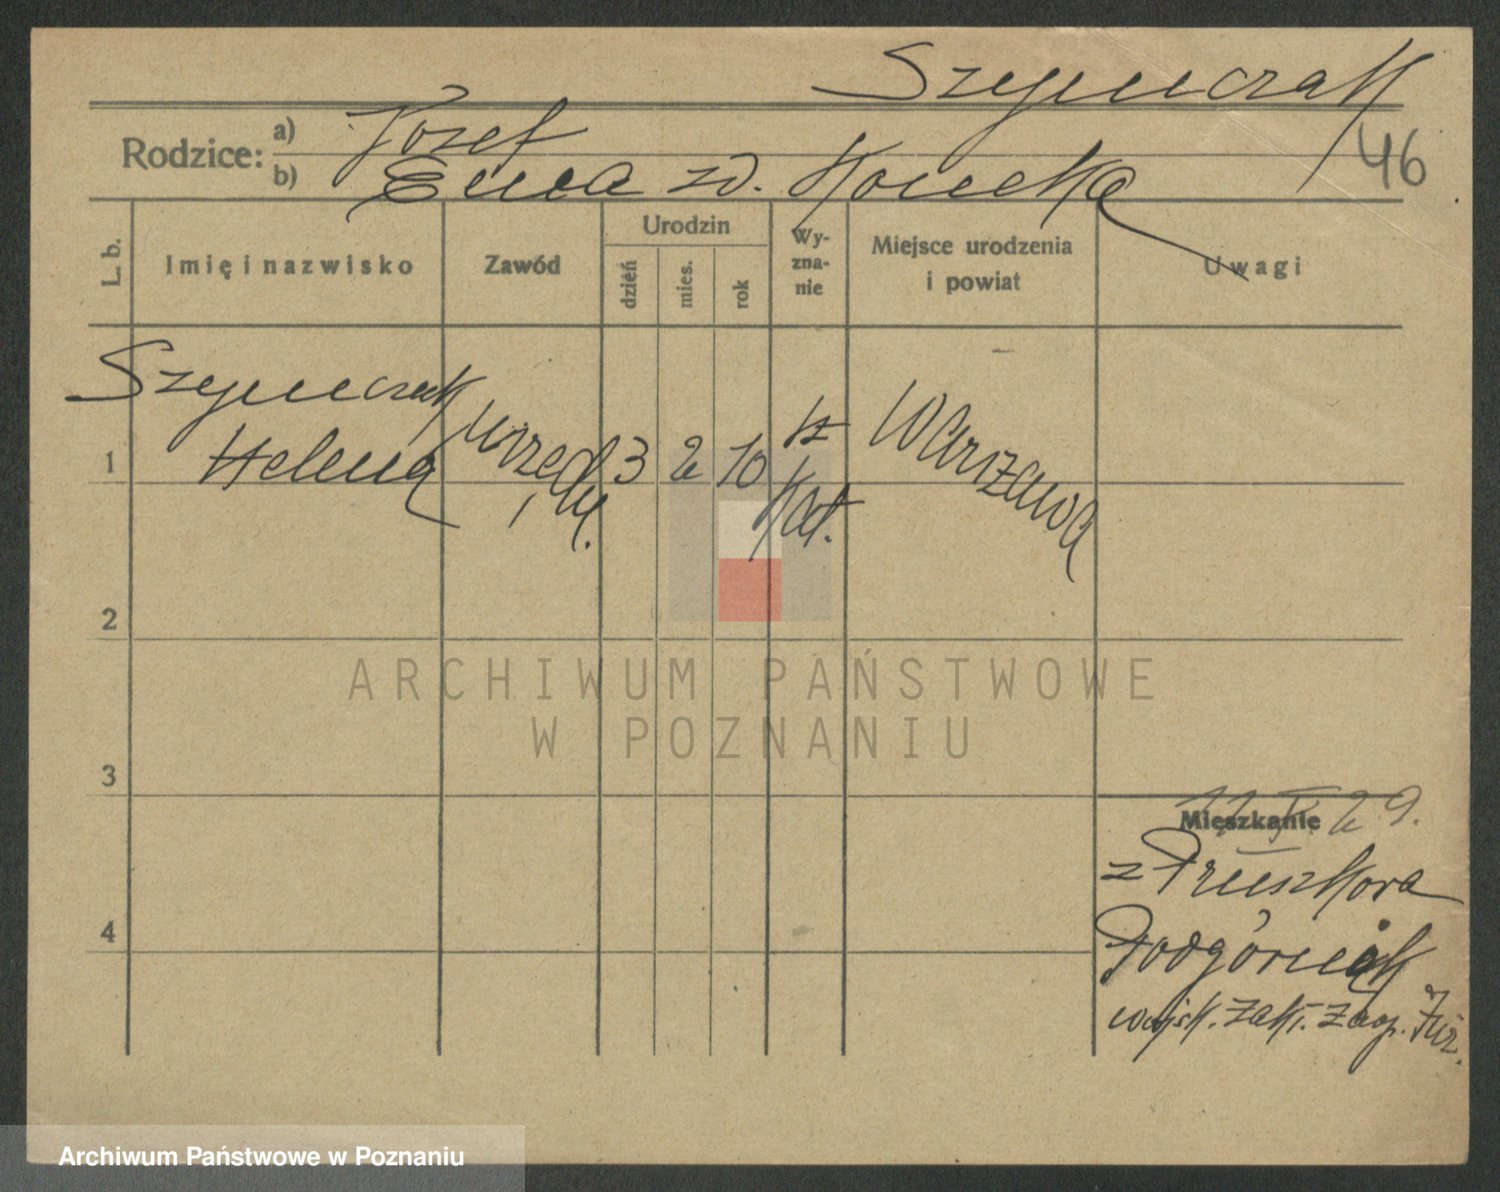 Szymczak
46
Rodzice: a) Józef
b) Ewa zd. Konecka
L. b.
Imię i nazwisko
Zawód
Urodzin
dzień
mies.
rok
Wy-
zna-
nie
Miejsce urodzenia
i powiat
Uwagi
Szymczak
1 Helena
urzędn.
3 2 10
rz
Kat.
Warszawa
2
3
4
Mieszkanie
29.
z Pruszkowa
Podgórnik
wojsk. zakł. zaop. Inż.
ARCHIWUM PAŃSTWOWE
W POZNANIU
Archiwum Państwowe w Poznaniu